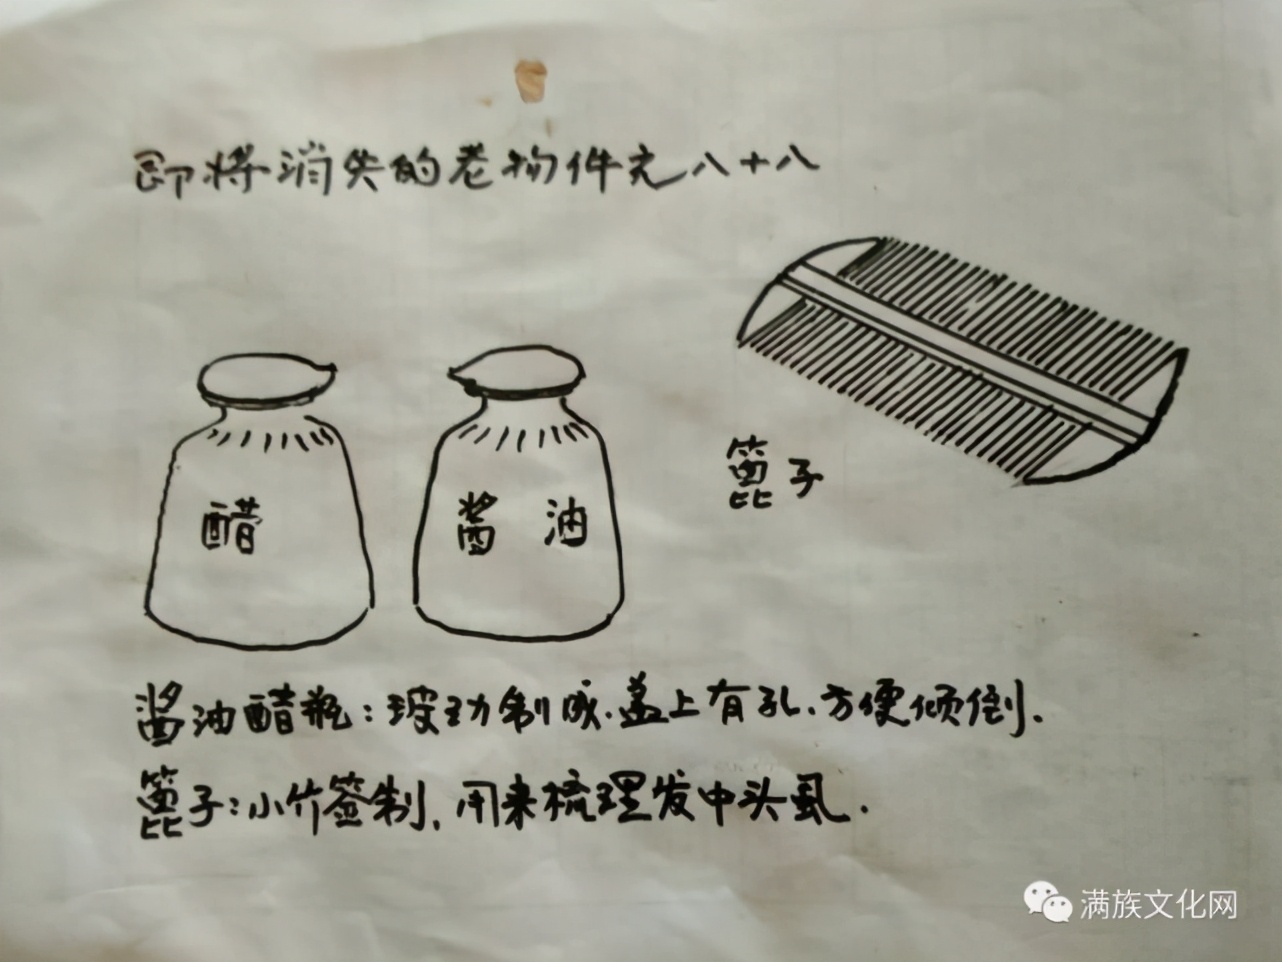 即将消失的老物件之八十八
篦子
醋
酱油
酱油醋瓶：玻璃制成.盖上有孔.方便倾倒.
篦子：小竹签制，用来梳理发中头虱.
满族文化网